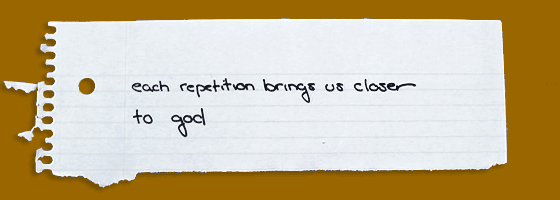 each repetition brings us closer
to god